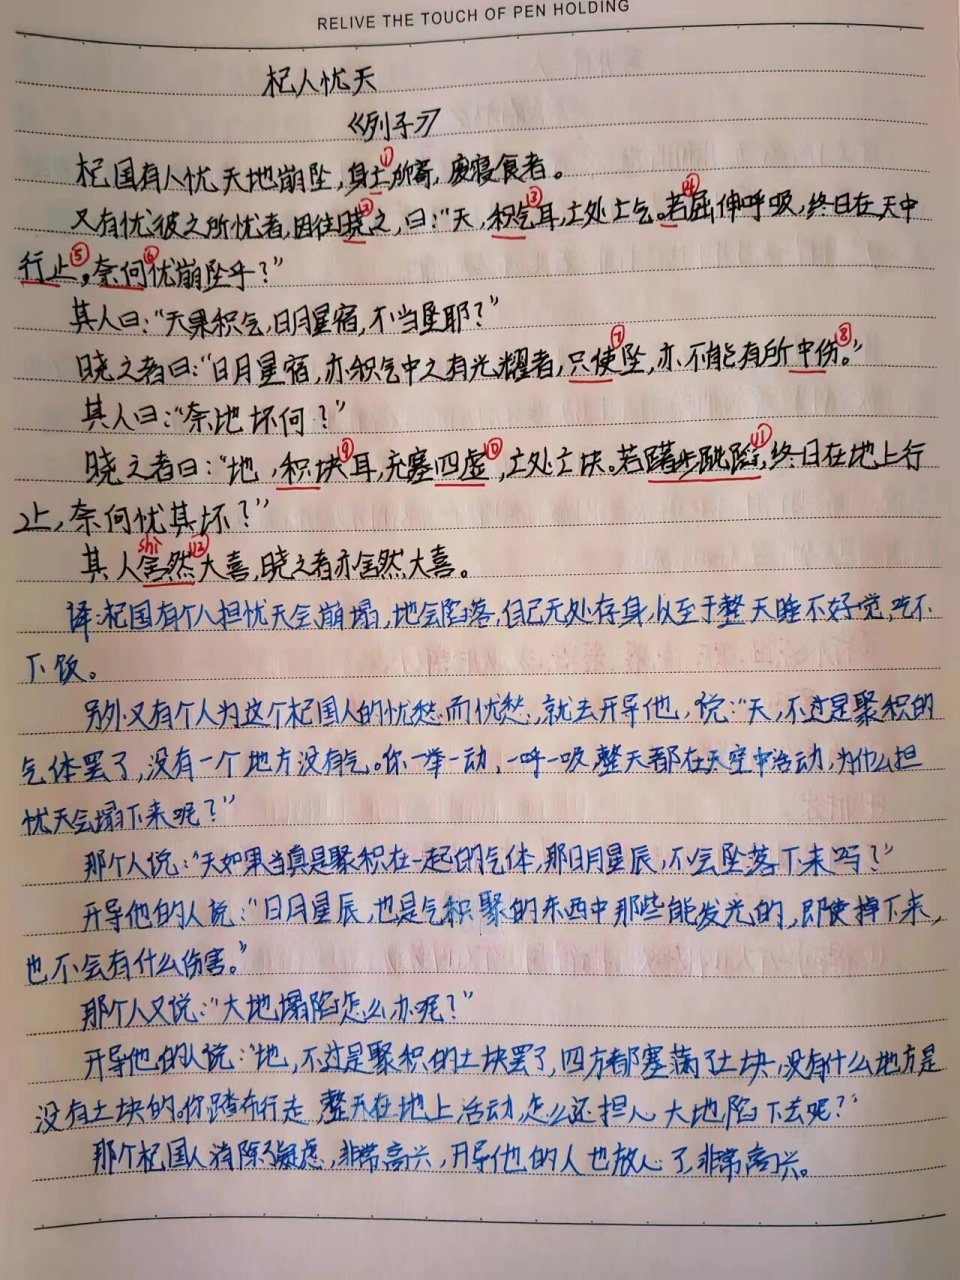 RELIVE THE TOUCH OF PEN HOLDING
杞人忧天
《列子》
杞国有人忧天地崩坠，身亡①所寄，废寝食者。
又有忧彼之所忧者，因往晓②之，曰：“天，积气③耳，亡处亡气。若④屈伸呼吸，终日在天中
行止⑤，奈何⑥忧崩坠乎？”
其人曰：“天果积气，日月星宿，不当坠耶？”
晓之者曰：“日月星宿，亦积气中之有光耀者，只使⑦坠，亦不能有所中伤⑧。”
其人曰：“奈地坏何？”
晓之者曰：“地，积块⑨耳，充塞四虚⑩，亡处亡块。若躇步跐蹈⑪，终日在地上行
止，奈何忧其坏？”
其人舍然shì⑫大喜，晓之者亦舍然大喜。
译：杞国有个人担忧天会崩塌，地会陷落，自己无处存身，以至于整天睡不好觉，吃不
下饭。
另外又有个人为这个杞国人的忧愁而忧愁，就去开导他，说：“天，不过是聚积的
气体罢了，没有一个地方没有气。你一举一动，一呼一吸，整天都在天空中活动，为什么担
忧天会塌下来呢？”
那个人说：“天如果当真是聚积在一起的气体，那日月星辰，不会坠落下来吗？”
开导他的人说：“日月星辰，也是气积聚的东西中那些能发光的，即使掉下来，
也不会有什么伤害。”
那个人又说：“大地塌陷怎么办呢？”
开导他的人说：“地，不过是聚积的土块罢了，四方都塞满了土块，没有什么地方是
没有土块的。你踏布行走，整天在地上活动，怎么还担心大地陷下去呢？”
那个杞国人消除了疑虑，非常高兴，开导他的人也放心了，非常高兴。